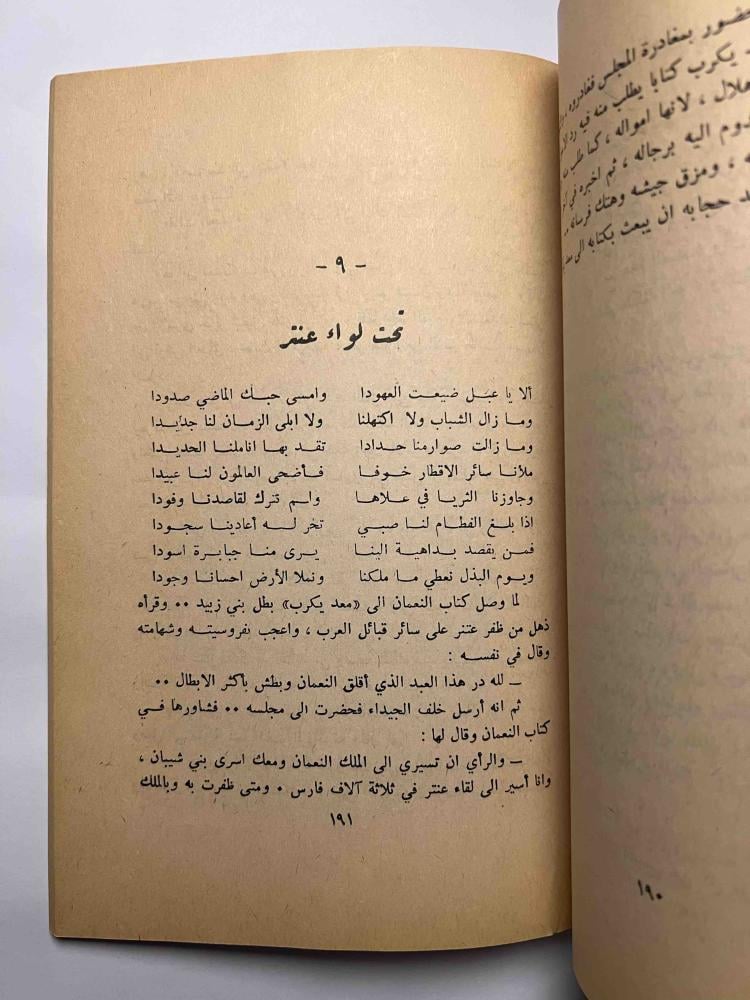 بمغادرة المجلس فغادروه
يكرب كتابا يطلب منه فيه رد
لانها امواله ، كما طلب
اليه برجاله ، ثم اخبره في
، ومزق جيشه وهتك فرسانه ..
حجابه ان يبعث بكتابه الى
١٩٠
- ٩ -
تحت لواء عنتر
ألا يا عبل ضيعت العهودا وامسى حبك الماضي صدودا
وما زال الشباب ولا اكتهلنا ولا ابلى الزمان لنا جديدا
وما زالت صوارمنا حدادا تقد بها اناملنا الحديدا
ملأنا سائر الاقطار خوفا فأضحى العالمون لنا عبيدا
وجاوزنا الثريا في علاها ولم نترك لقاصدنا وفودا
اذا بلغ الفطام لنا صبي تخر له أعادينا سجودا
فمن يقصد بداهية الينا يرى منا جبابرة اسودا
ويوم البذل نعطي ما ملكنا ونملا الأرض احسانا وجودا
لما وصل كتاب النعمان الى «معد يكرب» بطل بني زبيد .. وقرأه
ذهل من ظفر عنتر على سائر قبائل العرب ، واعجب بفروسيته وشهامته
وقال في نفسه :
ــ لله در هذا العبد الذي أقلق النعمان وبطش بأكثر الابطال ..
ثم انه أرسل خلف الجيداء فحضرت الى مجلسه .. فشاورها في
كتاب النعمان وقال لها :
ــ والرأي ان تسيري الى الملك النعمان ومعك اسرى بني شيبان ،
وانا أسير الى لقاء عنتر في ثلاثة آلاف فارس . ومتى ظفرت به وبالملك
١٩١